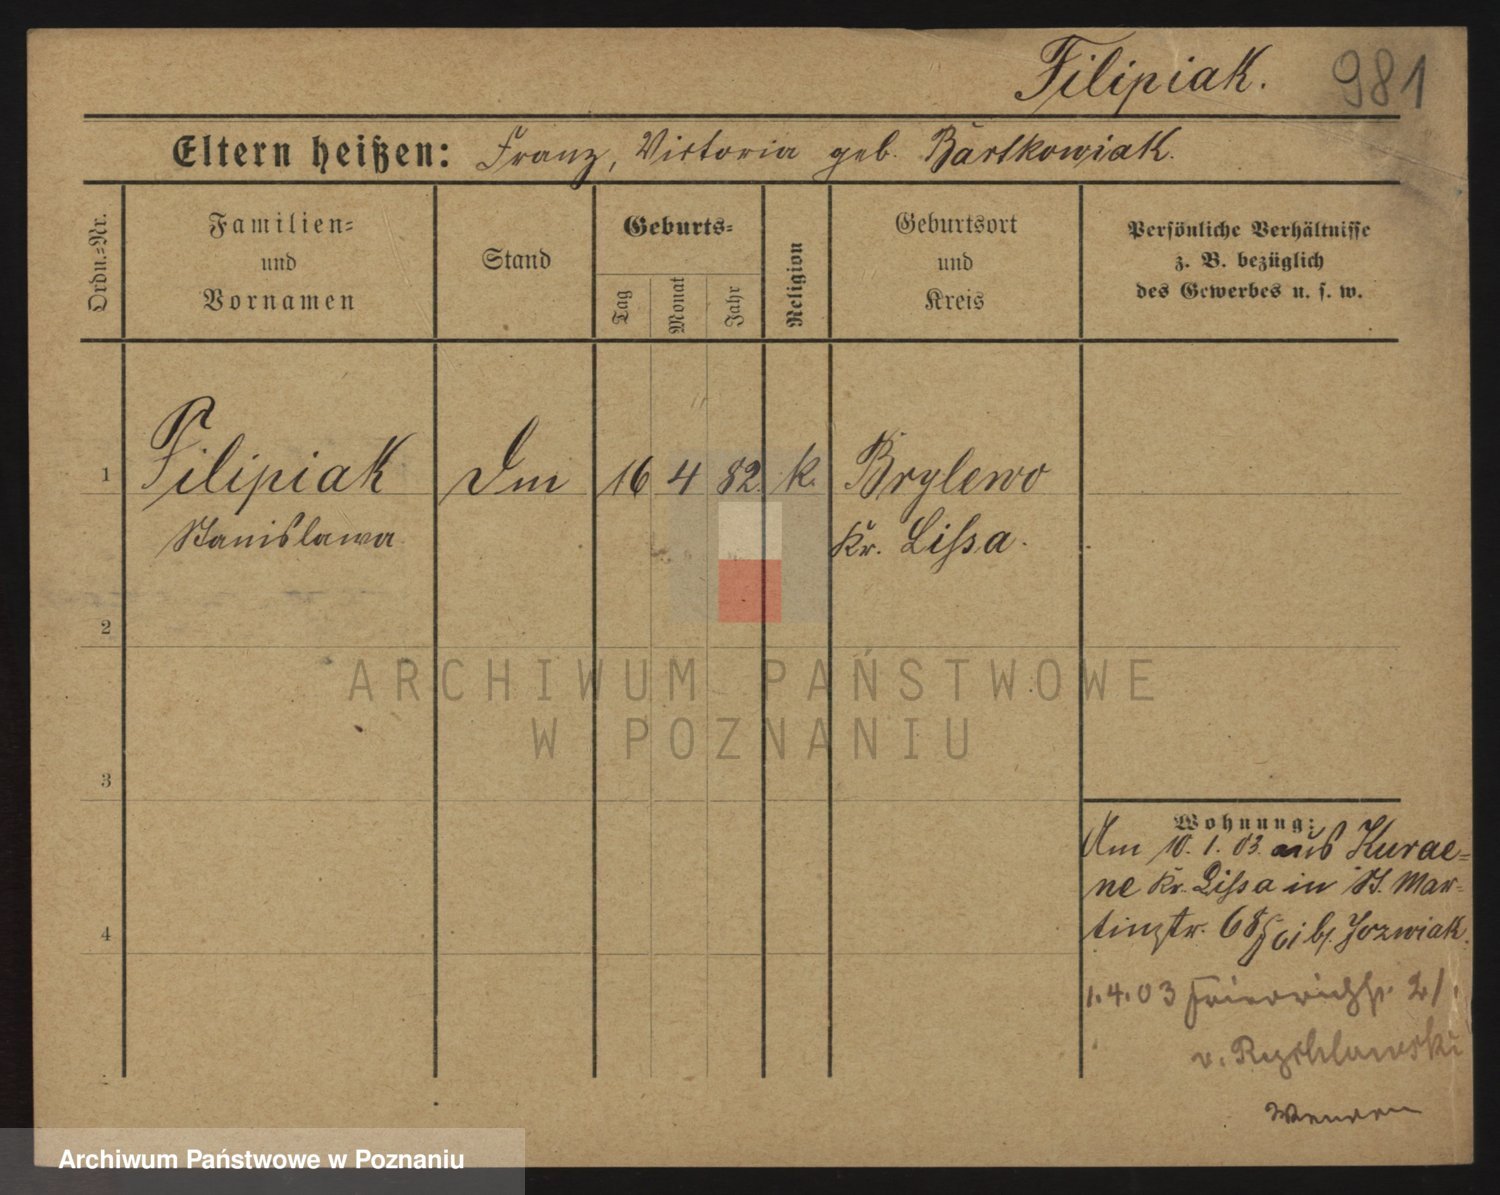 Filipiak. 981
Eltern heißen: Franz, Victoria geb. Bartkowiak.
Ordn.=Nr.
Familien=
und
Vornamen
Stand
Geburts=
Tag
Monat
Jahr
Religion
Geburtsort
und
Kreis
Persönliche Verhältnisse
z. B. bezüglich
des Gewerbes u. s. w.
1 Filipiak Dm 16 4 82. k. Brylewo
Stanislawa Kr. Lissa.
2
ARCHIWUM PAŃSTWOWE
W POZNANIU
3
Wohnung:
Am 10. 1. 03. aus
ne Kr. Lissa in St. Mar=
4 tinstr. 68 bei Jozwiak.
1.4.03 Friedrichstr. 21.
v.
Wenden
Archiwum Państwowe w Poznaniu